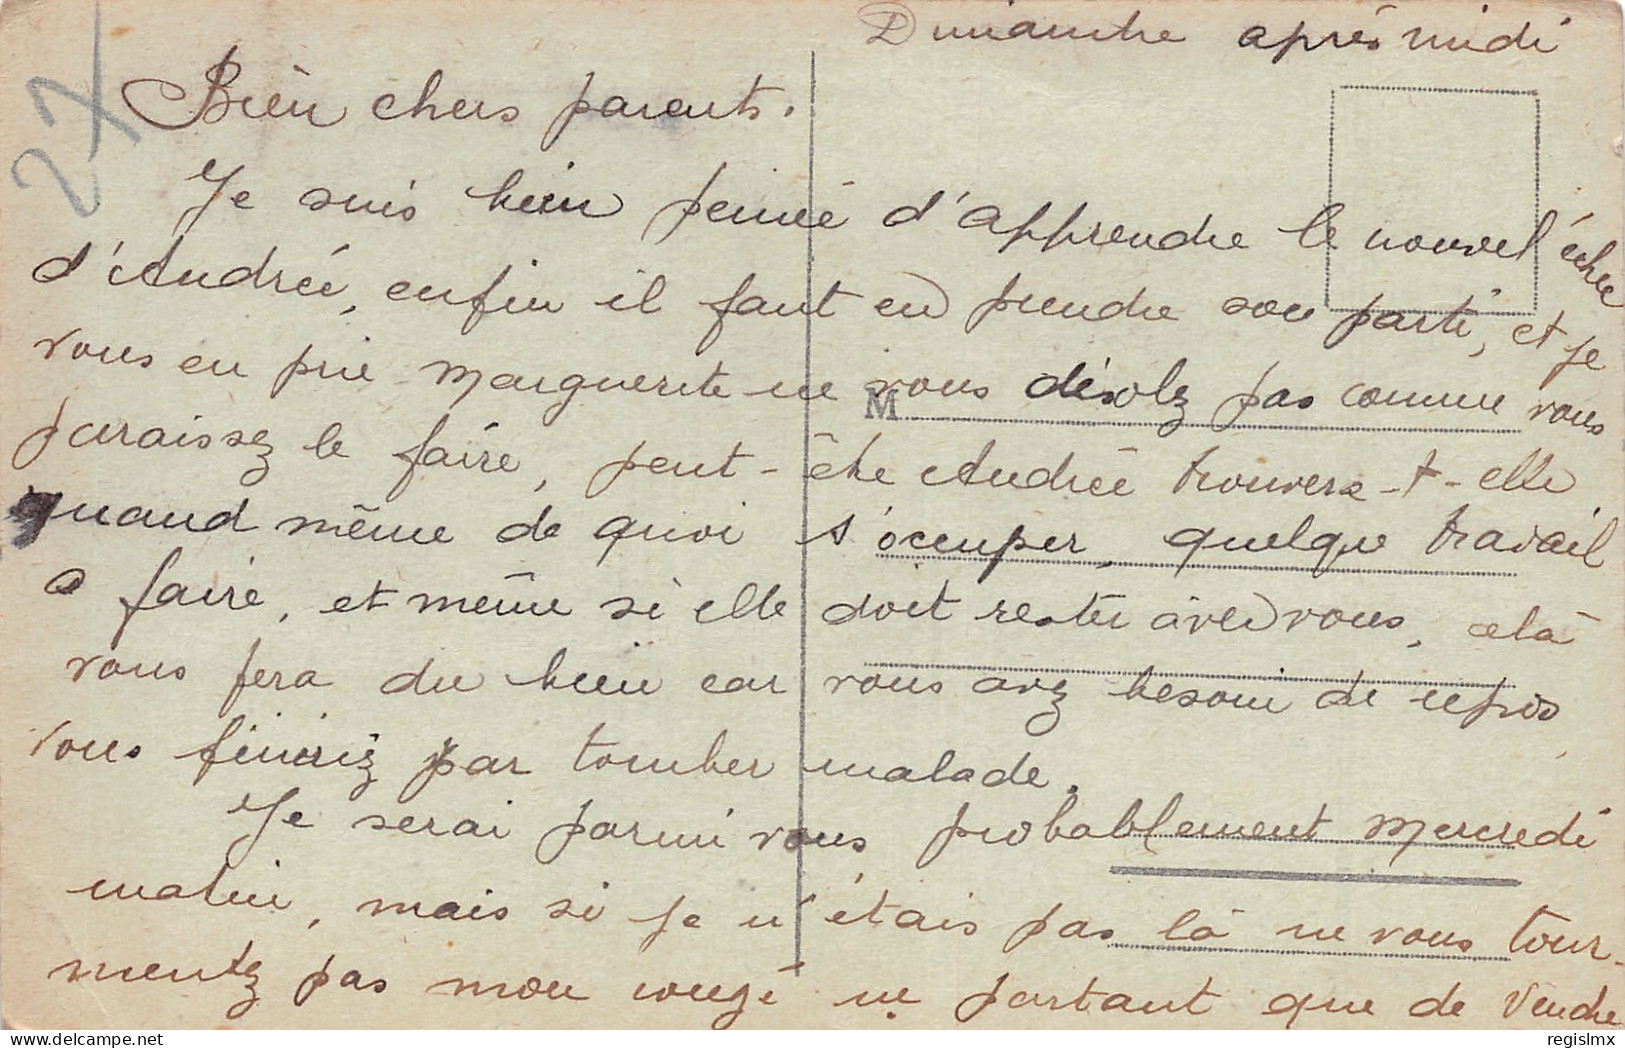 Dimanche après midi
27
Bien chers parents.
Je suis bien peinée d'apprendre le nouvel échec
d'Andrée, enfin il faut en prendre son parti, et je
vous en prie Marguerite ne vous désolez pas comme vous
M
paraissez le faire, peut-être Andrée trouvera-t-elle
quand même de quoi s'occuper, quelque travail
a faire, et même si elle doit rester avec vous, cela
vous fera du bien car vous avez besoin de repos
vous finirez par tomber malade.
Je serai parmi vous probablement Mercredi
matin, mais si je n'étais pas là ne vous tour-
mentez pas mon congé ne partant que de Vendre
regislmx